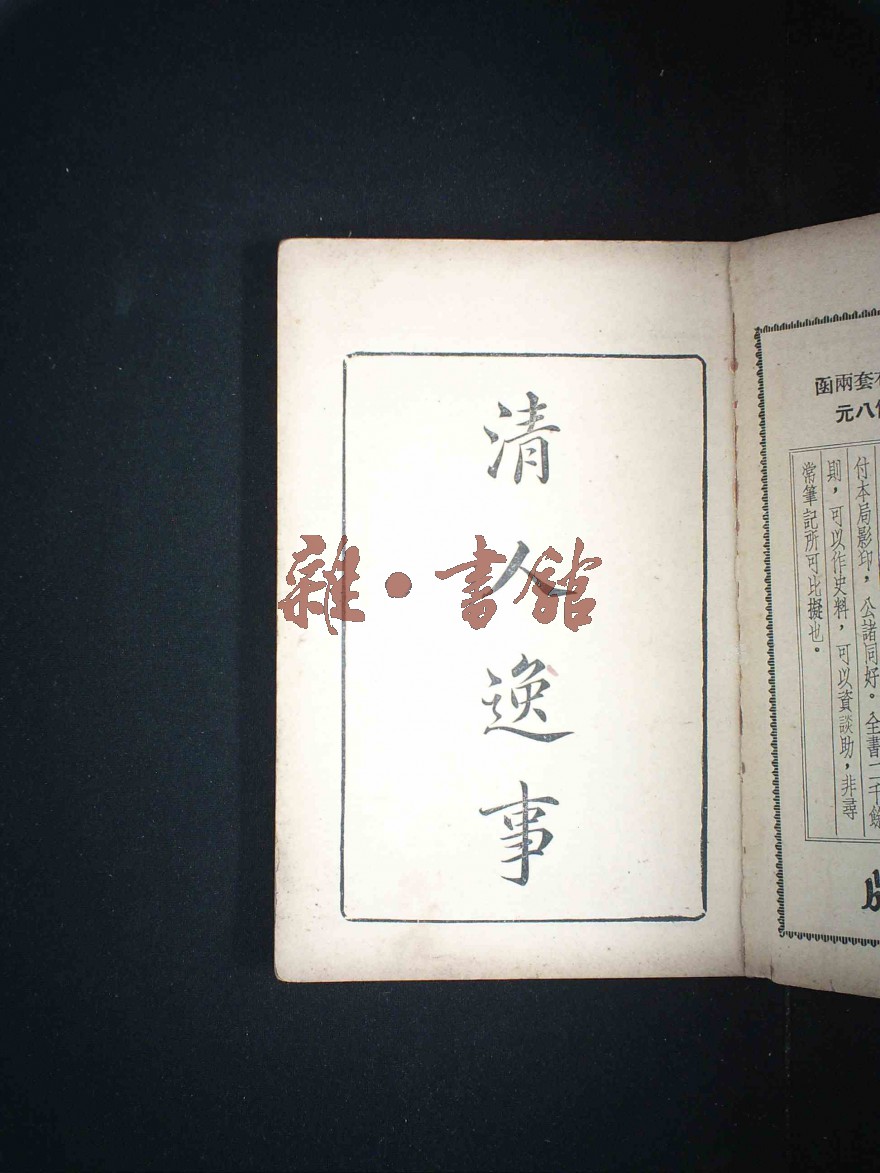 清人逸事
雜·書館
套兩函
八元
付本局影印，公諸同好。全書二千餘
則，可以作史料，可以資談助，非尋
常筆記所可比擬也。